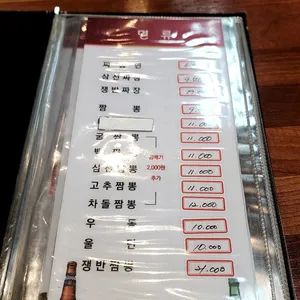 면 류
짜 장 면
삼선짜장
쟁반짜장
짬 뽕 11,000
굴 짬 뽕 11,000
11,000
삼선짬뽕 11,000
고추짬뽕 11,000
차돌짬뽕 12,000
곱빼기
2,000원
추가
우 동 10,000
울 면 10,000
쟁반짬뽕 21,000